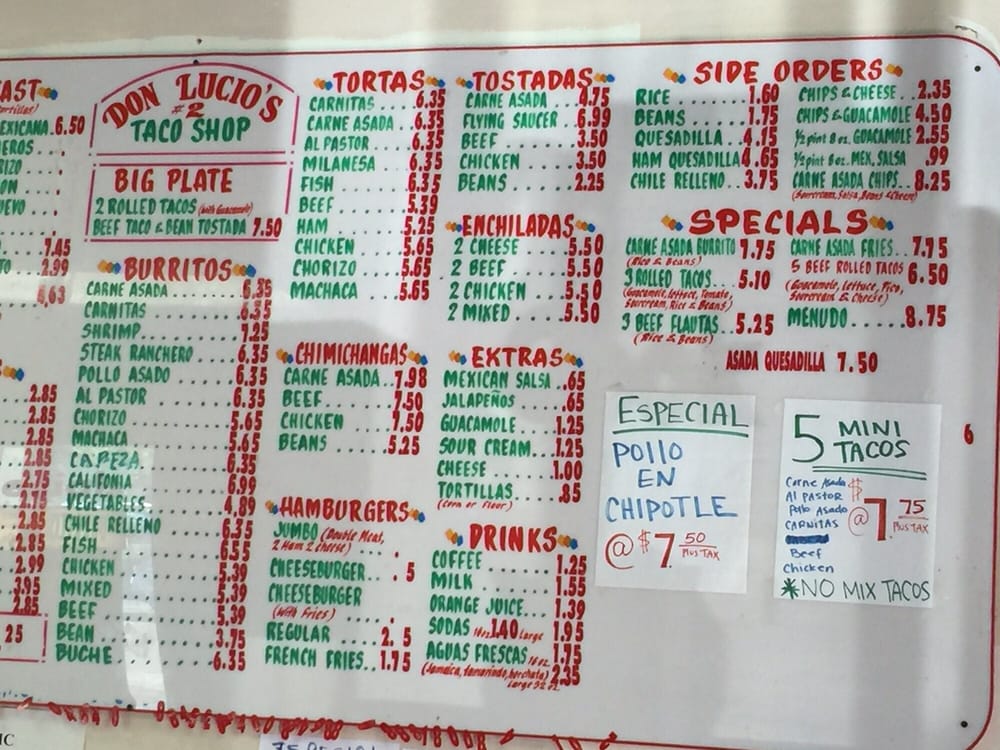 6.50
7.45
2.99
2.85
2.85
2.85
2.85
2.75
2.75
2.85
2.85
2.99
3.95
2.85
25
DON LUCIO'S
#2
TACO SHOP
BIG PLATE
2 ROLLED TACOS (with Guacamole)
BEEF TACO & BEAN TOSTADA 7.50
BURRITOS
CARNE ASADA 6.35
CARNITAS 6.35
SHRIMP 7.25
STEAK RANCHERO 6.35
POLLO ASADO 6.35
AL PASTOR 6.35
CHORIZO 5.65
MACHACA 5.65
CABEZA 6.35
CALIFONIA 6.99
VEGETABLES 4.89
CHILE RELLENO 6.35
FISH 6.55
CHICKEN 5.39
MIXED 5.39
BEEF 5.39
BEAN 3.75
BUCHE 6.35
TORTAS
CARNITAS 6.35
CARNE ASADA 6.35
AL PASTOR 6.35
MILANESA 6.35
FISH 6.35
BEEF 5.39
HAM 5.25
CHICKEN 5.65
CHORIZO 5.65
MACHACA 5.65
CHIMICHANGAS
CARNE ASADA 7.98
BEEF 7.50
CHICKEN 7.50
BEANS 5.25
HAMBURGERS
JUMBO (Double Meat,
2 Ham 2 cheese)
CHEESEBURGER . 5
CHEESEBURGER
(With Fries)
REGULAR 2. 5
FRENCH FRIES 1.75
TOSTADAS
CARNE ASADA 4.75
FLYING SAUCER 6.99
BEEF 3.50
CHICKEN 3.50
BEANS 2.25
ENCHILADAS
2 CHEESE 5.50
2 BEEF 5.50
2 CHICKEN 5.50
2 MIXED 5.50
EXTRAS
MEXICAN SALSA .65
JALAPEÑOS .65
GUACAMOLE 1.25
SOUR CREAM 1.25
CHEESE 1.00
TORTILLAS .85
(Corn or Flour)
DRINKS
COFFEE 1.25
MILK 1.55
ORANGE JUICE 1.39
SODAS 16oz 1.40 Large 1.95
AGUAS FRESCAS 16 oz. 1.75
(Jamaica, tamarindo, horchata) 2.35
Large 32 oz.
SIDE ORDERS
RICE 1.60
BEANS 1.75
QUESADILLA 4.15
HAM QUESADILLA 4.65
CHILE RELLENO 3.75
CHIPS & CHEESE 2.35
CHIPS & GUACAMOLE 4.50
1/2 pint 8 oz. GUACAMOLE 2.55
1/2 pint 8 oz. MEX. SALSA .99
CARNE ASADA CHIPS 8.25
(Sourcream, Salsa, Beans & Cheese)
SPECIALS
CARNE ASADA BURRITO 7.75
(Rice & Beans)
3 ROLLED TACOS 5.10
(Guacamole, lettuce, Tomato,
Sourcream, Rice & Beans)
3 BEEF FLAUTAS 5.25
(Rice & Beans)
CARNE ASADA FRIES 7.75
5 BEEF ROLLED TACOS 6.50
(Guacamole, Lettuce, Pico,
Sourcream & Cheese)
MENUDO 8.75
ASADA QUESADILLA 7.50
ESPECIAL
POllO
EN
CHIPOTLE
@ $7.50
PlUS TAX
5 MINI
TACOS
Carne Asada
Al PASTOR
Pollo Asado
CARNITAS
Beef
Chicken
@ $7.75
PlUS TAX
*NO MIX TACOS
6